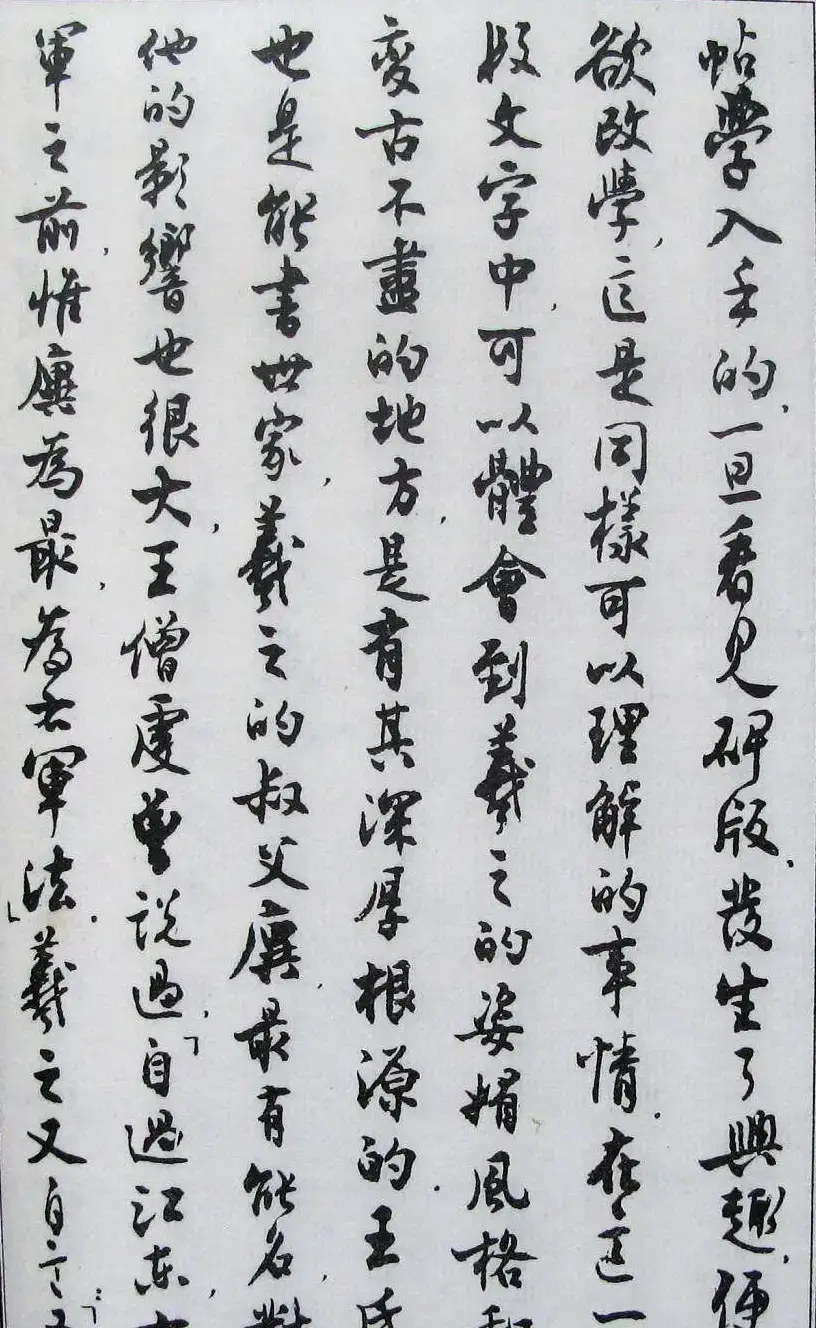 帖學入手的，一旦看見碑版，發生了興趣，便
欲改學，這是同樣可以理解的事情。在這一
段文字中，可以體會到羲之的姿媚風格和
變古不盡的地方，是有其深厚根源的。王氏
也是能書世家，羲之的叔父廙，最有能名，對
他的影響也很大，王僧虔曾說過，「自過江東，右
軍之前，惟廙為最，為右軍法。」羲之又自言